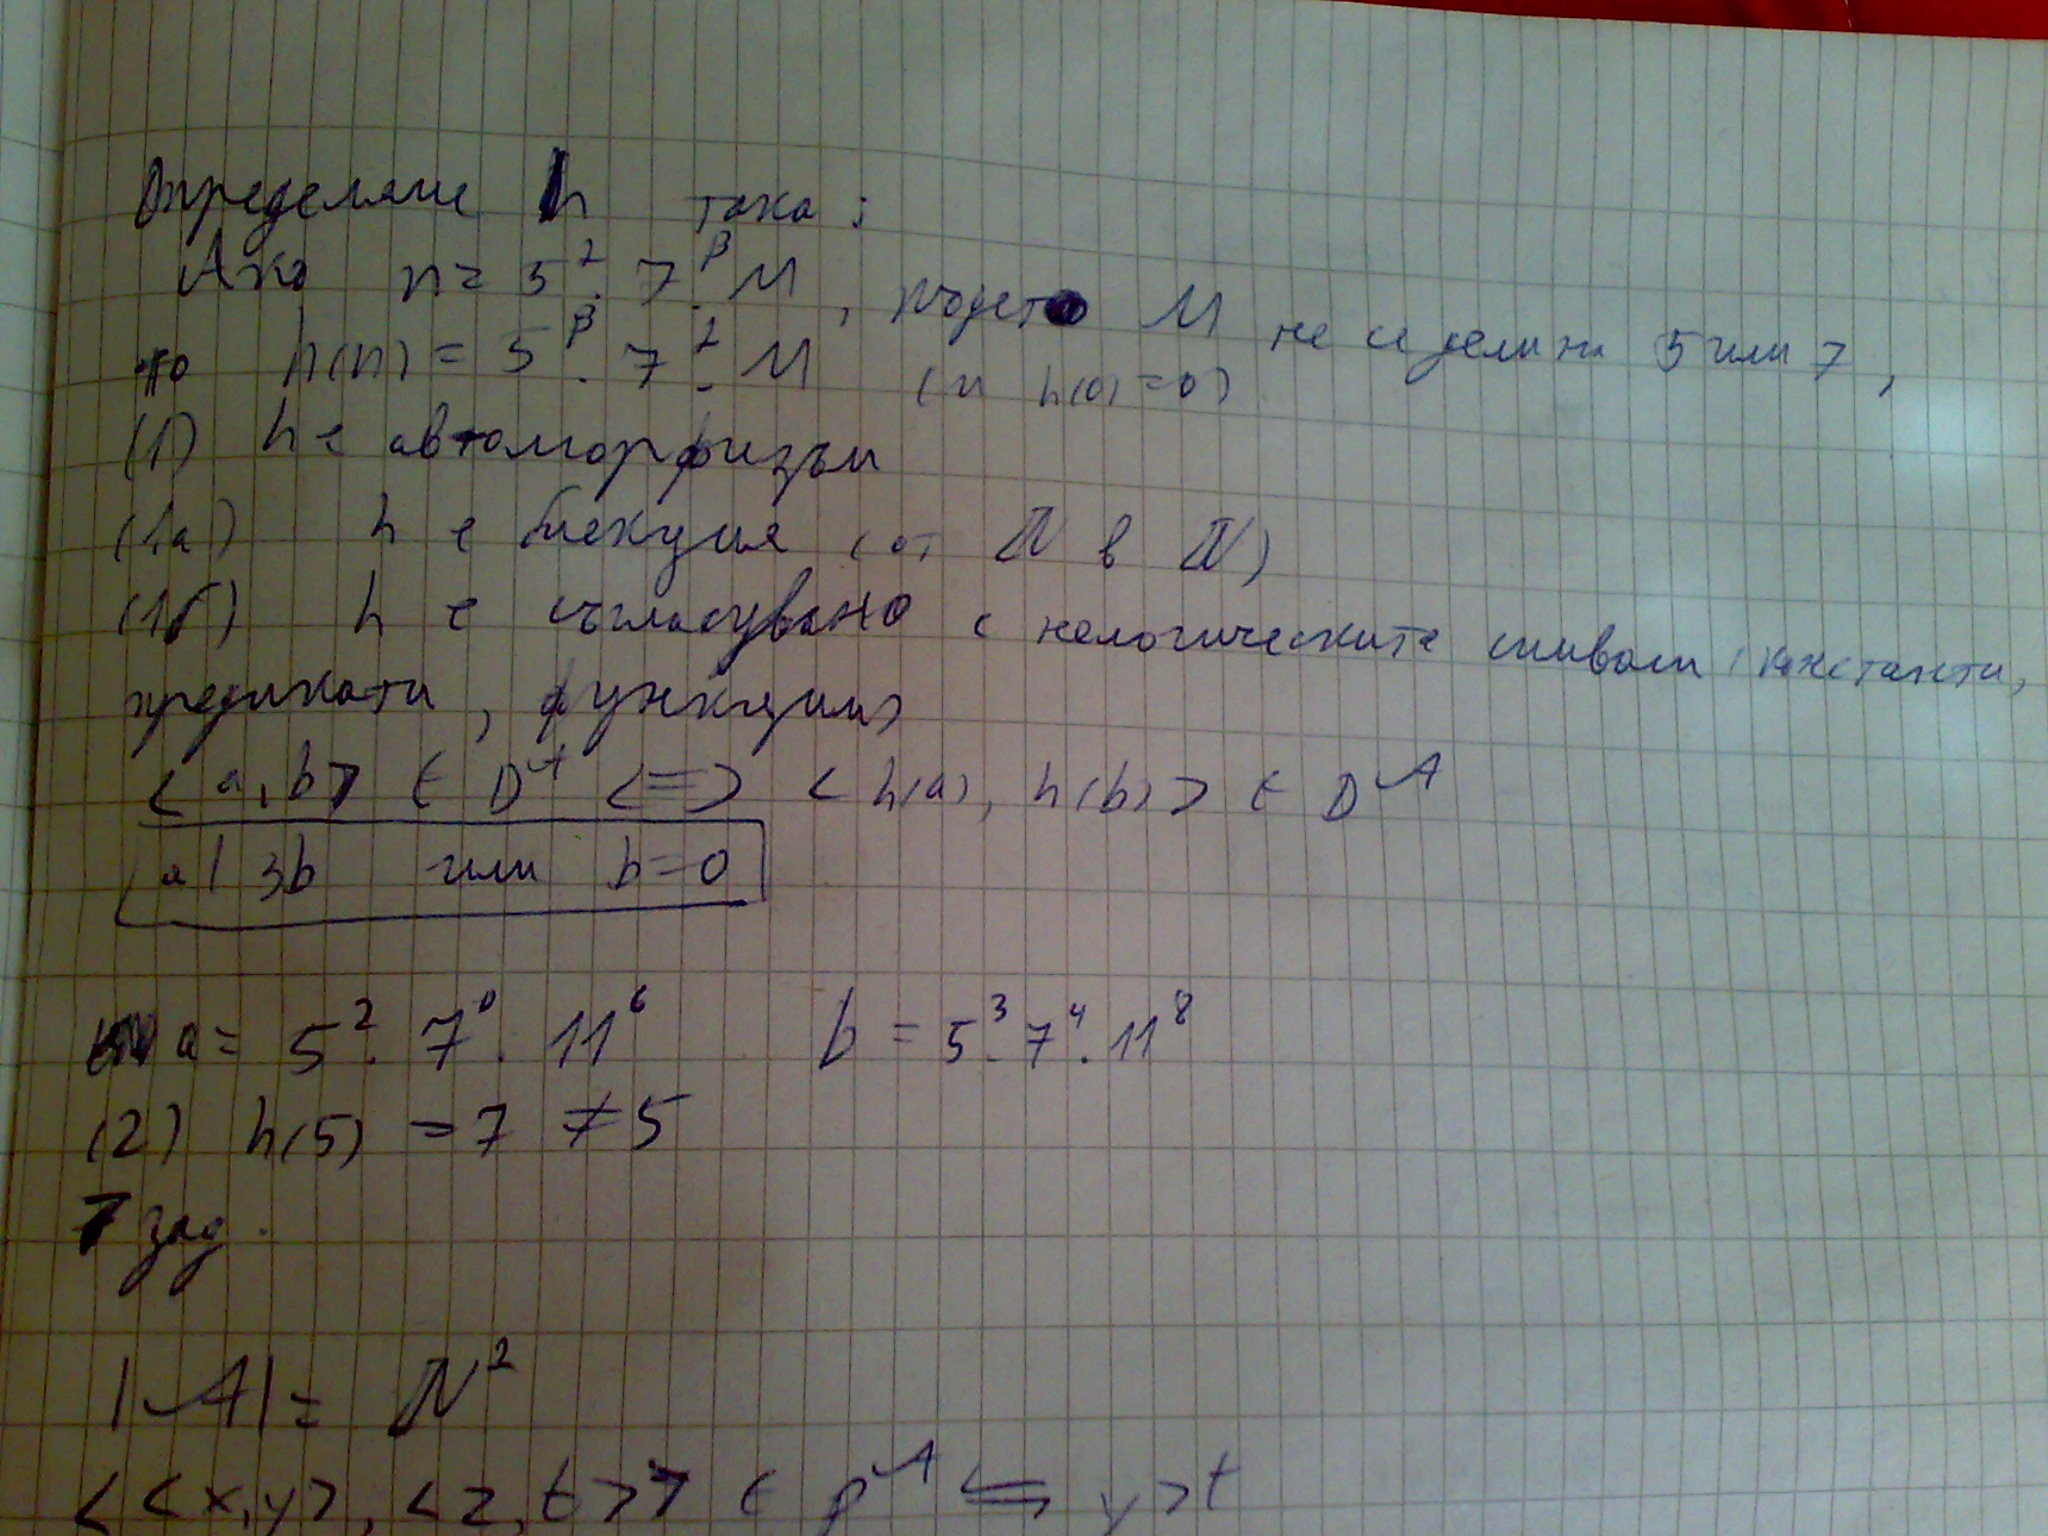 Определяме h така:
Ако n = 5^α . 7^β . M, където M не се дели на 5 или 7,
то h(n) = 5^β . 7^α . M (и h(0)=0)
(1) h е автоморфизъм
(1а) h е биекция (от ℕ в ℕ)
(1б) h е съгласувано с нелогическите символи (константи,
предикати, функции)
<a, b> ∈ D^A <=> <h(a), h(b)> ∈ D^A
a | 3b или b=0
a = 5^2 . 7^0 . 11^6 b = 5^3 . 7^4 . 11^8
(2) h(5) = 7 ≠ 5
7 зад.
|A| = ℕ^2
<<x,y>, <z,t>> ∈ p^A ⇆ y>t